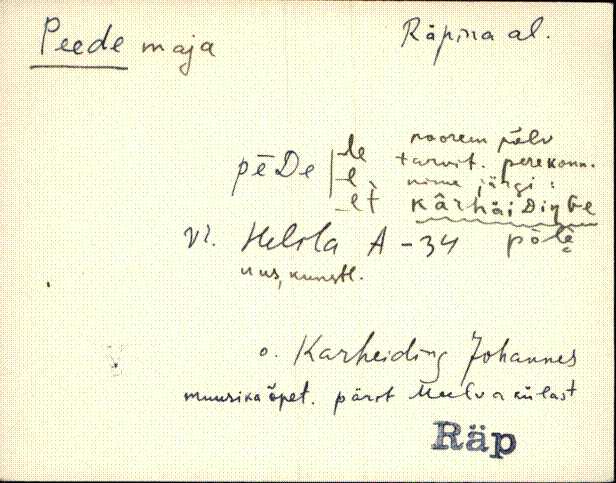 Peede maja
Räpina al.
pēDe | -le noorem põlv
-l tarvit. perekonn.
-lt nime järgi:
kârhäiDiŋGe
vr. Helsla A-34 põlē
uus, kunstl.
o. Karheiding Johannes
muusikaõpet. pärit Meelva külast
Räp